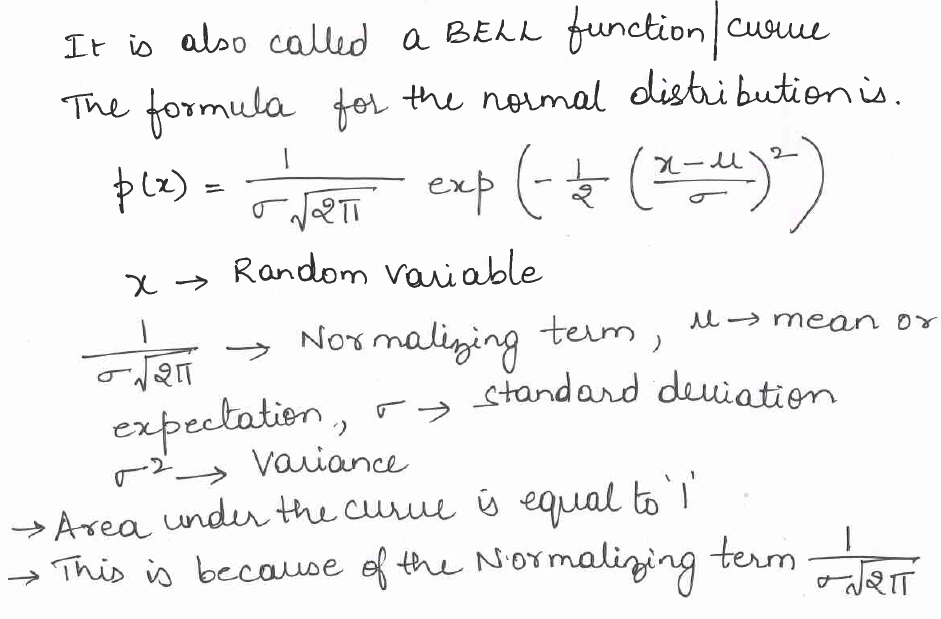 It is also called a BELL function/curve
The formula for the normal distribution is.
p(x) = 1/(σ√2π) exp(-1/2 ((x-μ)/σ)²)
x → Random variable
1/(σ√2π) → Normalizing term, μ → mean or
expectation, σ → standard deviation
σ² → Variance
→ Area under the curve is equal to '1'
→ This is because of the Normalizing term 1/(σ√2π)